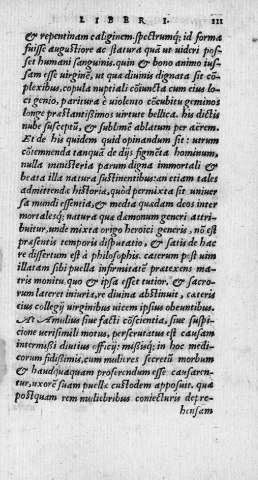 LIBER I. III
& repentinam caliginem. spectrumq; id forma
fuisse augustiore ac statura quã ut uideri pos
set humani sanguinis. quin & bono animo ius-
sam esse uirginẽ, ut qua diuinis dignata sit cõ
plexibus, copula nuptiali cõiuncta cum eius lo
ci genio, paritura è uiolento cõcubitu geminos
longe præstantissimos uirtute bellica. his dictis
nube susceptũ, & sublimẽ ablatum per aerem.
Et de his quidem quid opinandum sit: utrum
cõtemnenda tanquã de dijs figmẽta hominum,
nulla ministeria parum digna immortali &
beata illa natura sustinentibus: an etiam tales
admittendæ historiæ, quod permixta sit uniuer
sa mundi essentia, & media quædam deos inter
mortalesq; natura quæ dæmonum generi attri
buitur, unde mixta origo heroici generis, nõ est
præsentis temporis disputatio, & satis de hac
re dissertum est à philosophis. cæterum post uim
illatam sibi puella infirmitatẽ prætexens ma
tris monitu. quo & ipsa esset tutior, & sacro-
rum lateret iniuria, re diuina abstinuit, cæteris
eius collegij uirginibus uicem ipsius obeuntibus.
At Amulius siue facti cõscientia, siue suspi-
cione uerisimili motus, perscrutatus est causam
intermissi diutius officij: missisq; in hoc medi-
corum fidissimis, cum mulieres secretũ morbum
& haudquaquam proferendum esse causaren-
tur, uxorẽ suam puellæ custodem apposuit. quæ
postquam rem muliebribus coniecturis depre-
hensam